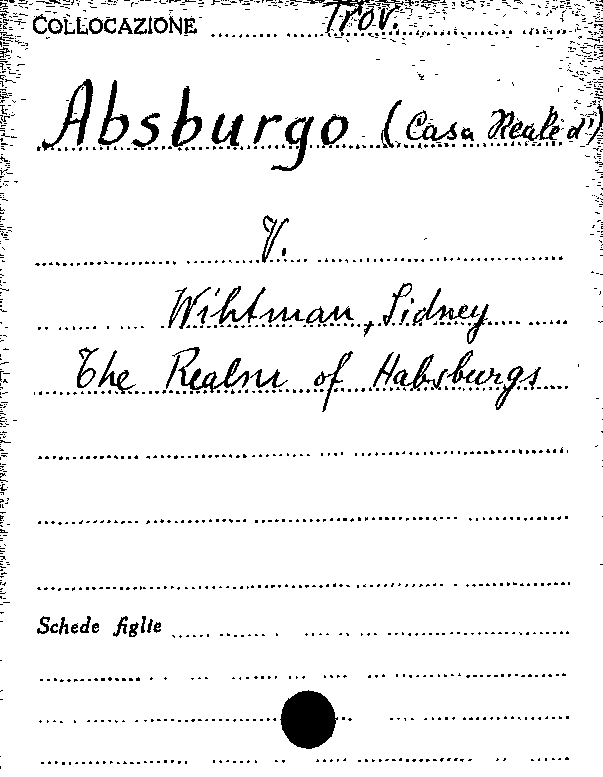 COLLOCAZIONE Trov.
Absburgo (Casa Reale d')
V.
Wihtman, Sidney
The Realm of Habsburgs
Schede figlie